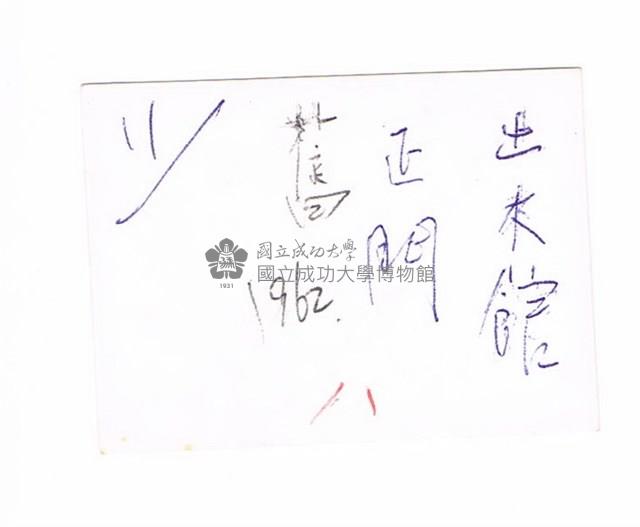 土木館
正門
舊
1962.
八
國立成功大學
國立成功大學博物館
1931